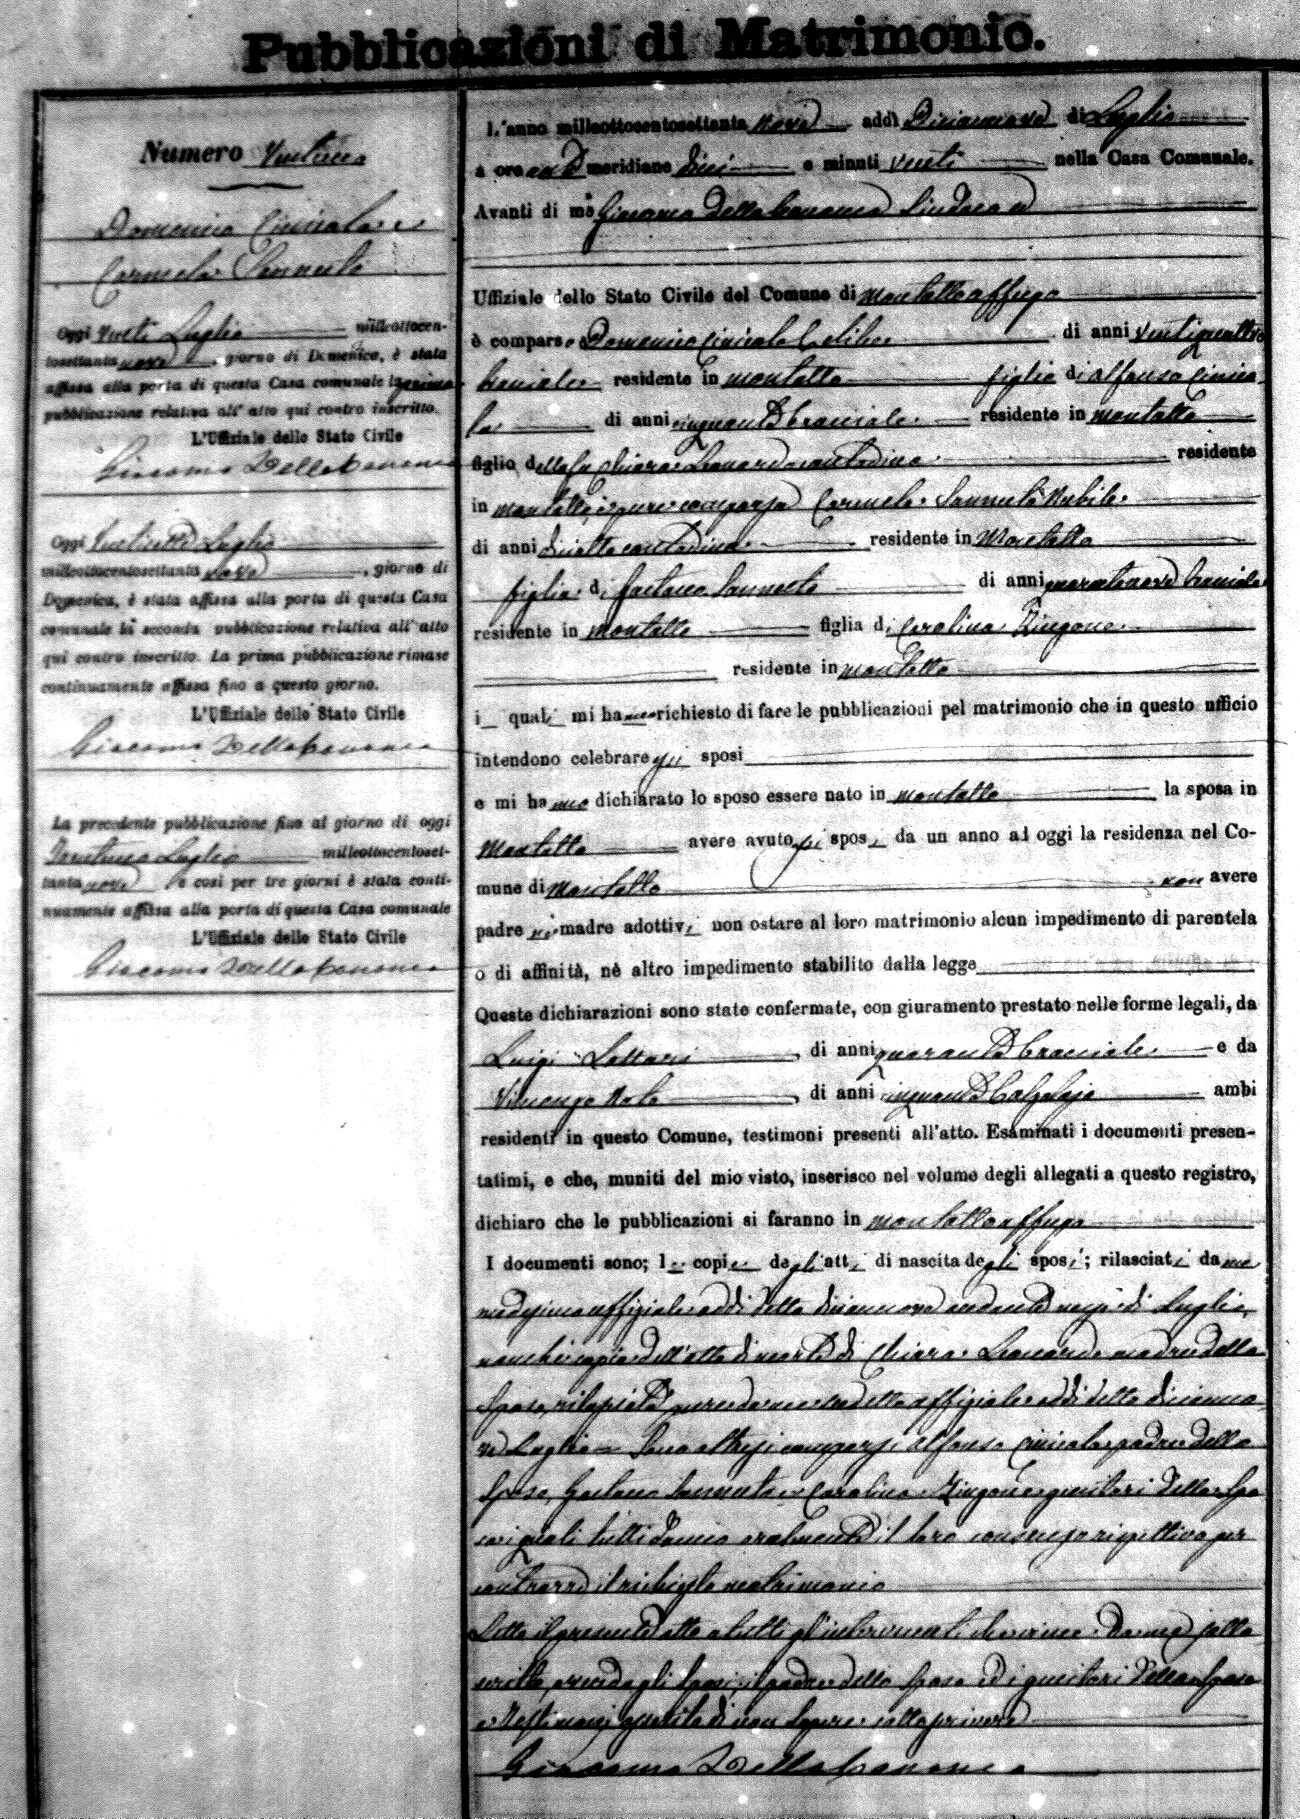 Pubblicazioni di Matrimonio.
Numero
Domenico Cinicola e
Carmela Sannuto
Oggi venti Luglio milleottocen-
tosettanta nove, giorno di Domenica, è stata
affissa alla porta di questa Casa comunale la prima
pubblicazione relativa all'atto qui contro inscritto.
L'Uffiziale dello Stato Civile
Giacomo Dellacananea
Oggi ventisette Luglio
milleottocentosettanta nove, giorno di
Domenica, è stata affissa alla porta di questa Casa
comunale la seconda pubblicazione relativa all'atto
qui contro inscritto. La prima pubblicazione rimase
continuamente affissa fino a questo giorno.
L'Uffiziale dello Stato Civile
Giacomo Dellacananea
La precedente pubblicazione fino al giorno di oggi
Trentuno Luglio milleottocentoset-
tanta nove e così per tre giorni è stata conti-
nuamente affissa alla porta di questa Casa comunale
L'Uffiziale dello Stato Civile
Giacomo Dellacananea
L'anno milleottocentosettanta nove addì Diciannove di Luglio
a ore meridiane dieci e minuti venti nella Casa Comunale.
Avanti di me Giacomo Dellacananea Sindaco ed
Uffiziale dello Stato Civile del Comune di Montalto uffugo
è comparso Domenico Cinicola Celibe di anni ventiquattro
bracciale residente in Montalto figlio di Alfonso Cinico
la di anni cinquanta bracciale residente in Montalto
figlio della fu Chiara Leonardo contadina residente
in Montalto, e pure comparsa Carmela Sannuto Nubile
di anni diciotto contadina residente in Montalto
figlia di Gaetano Sannuto di anni quarantanove bracciale
residente in Montalto figlia di Carolina Zingone
residente in Montalto
i quali mi hanno richiesto di fare le pubblicazioni pel matrimonio che in questo ufficio
intendono celebrare gli sposi
e mi hanno dichiarato lo sposo essere nato in Montalto la sposa in
Montalto avere avuto gli sposi da un anno ad oggi la residenza nel Co-
mune di Montalto non avere
padre nè madre adottivi non ostare al loro matrimonio alcun impedimento di parentela
o di affinità, nè altro impedimento stabilito dalla legge
Queste dichiarazioni sono state confermate, con giuramento prestato nelle forme legali, da
Luigi Lattari, di anni quaranta bracciale e da
Vincenzo Nola, di anni cinquanta Calzolajo ambi
residenti in questo Comune, testimoni presenti all'atto. Esaminati i documenti presen-
tatimi, e che, muniti del mio visto, inserisco nel volume degli allegati a questo registro,
dichiaro che le pubblicazioni si faranno in Montalto uffugo
I documenti sono; le copie degli atti di nascita degli sposi; rilasciati da me
medesimo uffiziale addi detto diciannove andante mese di Luglio,
nonchè copia dell'atto di morte di Chiara Leonardo madre dello
Sposo, rilasciata pure da me sudetto uffiziale addi detto dicianno
ve Luglio = Sono altresi comparsi Alfonso Cinicola padre dello
Sposo, Gaetano Sannuto e Carolina Zingone genitori della Spo
sa, i quali tutti danno oralmente il loro consenso rispettivo per
contrarre il richiesto matrimonio
Letto il presente atto a tutti gl'intervenuti che viene da me sotto
scritto, avendo gli sposi, il padre dello sposo ed i genitori della sposa
e testimoni asserito di non sapere sottoscrivere
Giacomo Dellacananea